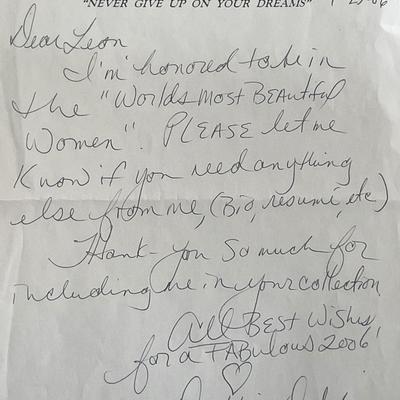 "NEVER GIVE UP ON YOUR DREAMS"
Dear Leon
I'm honored to be in
the "Worlds Most Beautiful
Women". PLEASE let me
Know if you need anything
else from me, (Bio, resumé, etc)
Thank-you so much for
including me in your collection
All Best Wishes,
for a FABulous 2006!